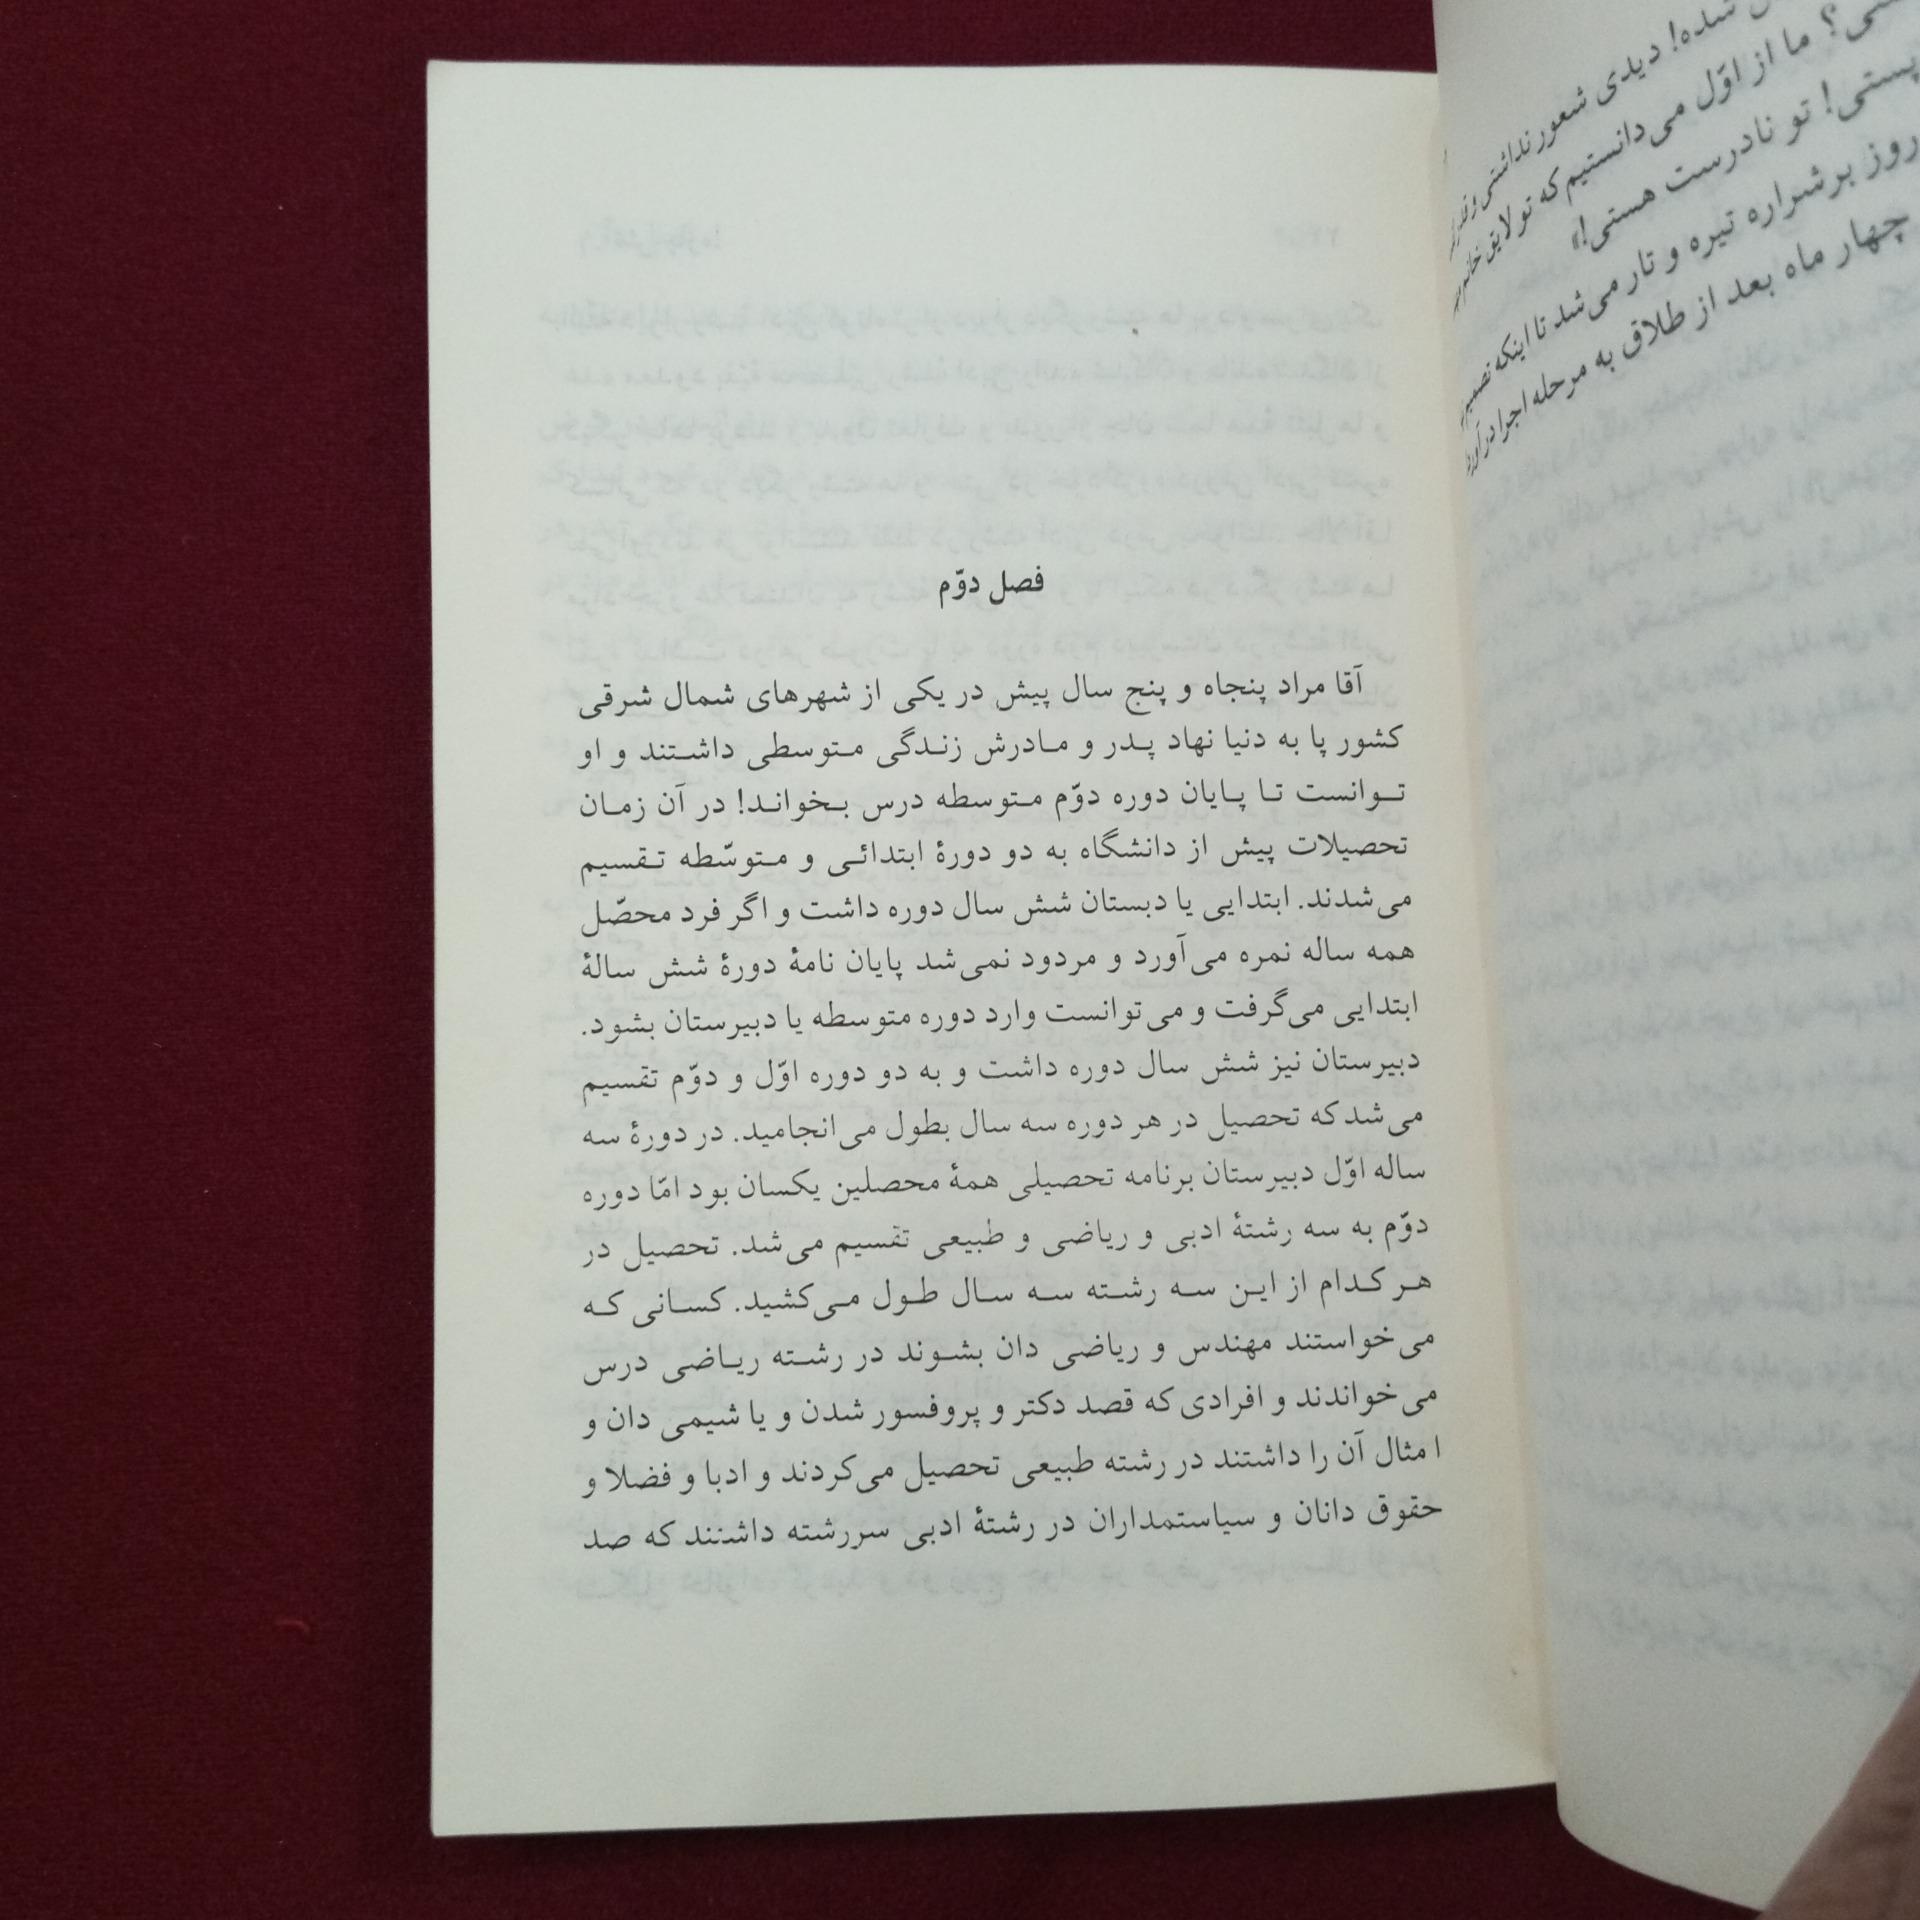 شده! دیدی شعور نداشتی و قدر
ما از اوّل می‌دانستیم که تو لایق خانم
پستی! تو نادرست هستی!»
روز بر شراره تیره و تار می‌شد تا اینکه تصمیم
چهار ماه بعد از طلاق به مرحله اجرا درآورد
فصل دوّم
آقا مراد پنجاه و پنج سال پیش در یکی از شهرهای شمال شرقی
کشور پا به دنیا نهاد پدر و مادرش زندگی متوسطی داشتند و او
توانست تا پایان دوره دوّم متوسطه درس بخواند! در آن زمان
تحصیلات پیش از دانشگاه به دو دورۀ ابتدائی و متوسّطه تقسیم
می‌شدند. ابتدایی یا دبستان شش سال دوره داشت و اگر فرد محصّل
همه ساله نمره می‌آورد و مردود نمی‌شد پایان نامۀ دورۀ شش سالۀ
ابتدایی می‌گرفت و می‌توانست وارد دوره متوسطه یا دبیرستان بشود.
دبیرستان نیز شش سال دوره داشت و به دو دوره اوّل و دوّم تقسیم
می‌شد که تحصیل در هر دوره سه سال بطول می‌انجامید. در دورۀ سه
ساله اوّل دبیرستان برنامه تحصیلی همۀ محصلین یکسان بود امّا دوره
دوّم به سه رشتۀ ادبی و ریاضی و طبیعی تقسیم می‌شد. تحصیل در
هر کدام از این سه رشته سه سال طول می‌کشید. کسانی که
می‌خواستند مهندس و ریاضی دان بشوند در رشته ریاضی درس
می‌خواندند و افرادی که قصد دکتر و پروفسور شدن و یا شیمی دان و
امثال آن را داشتند در رشته طبیعی تحصیل می‌کردند و ادبا و فضلا و
حقوق دانان و سیاستمداران در رشتۀ ادبی سررشته داشتند که صد